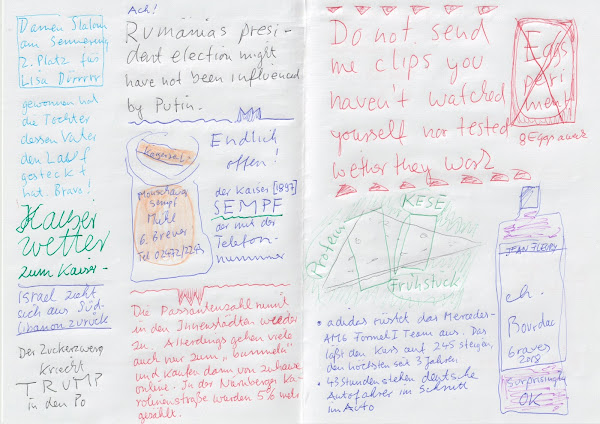 Damen Slalom
am Semmering
2. Platz für
Lisa Dörrrrr
gewonnen hat
die Tochter
dessen Vater
den Lauf
gesteckt
hat. Bravo!
Kaiser
wetter
zum Kaiser-
Israel zieht
sich aus Süd-
libanon zurück
Der Zuckerzwerg
kriecht
TRUMP
in den Po
Ach!
Rumänias presi-
dent election might
have not been influenced
by Putin.
Kaiserl.
Monschauer
Senpf
Mühle
G. Breuer
Tel 02472/2245
Endlich
offen!
der Kaiser [1897]
SEMPF
der mit der
Telefon-
nummer
Die Passantenzahl nimmt
in den Innenstädten wieder
zu. Allerdings gehen viele
auch nur zum „bummeln"
und kaufen dann von zuhause
online. In der Nürnberger Ka-
rolinenstraße wurden 5% mehr
gezählt.
Do not send
me clips you
haven't watched
yourself nor tested
wether they work
Eggs
peri
ment
8 Eggs a week
KESE
Protein
Frühstück
• adidas rüstet das Mercedes-
AMG Formel 1 Team aus. Das
läßt den Kurs auf 245 steigen,
den höchsten seit 3 Jahren.
• 43 Stunden stehen deutsche
Autofahrer im Schnitt
im Auto
JEAN FLEURY
ch.
Bourdac
Graves
2018
surprisingly
OK